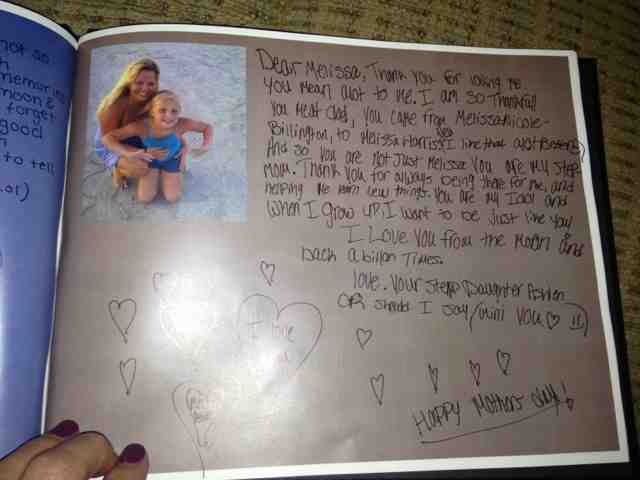 not so
memories
moon &
forget
good
to tell
Dear Melissa, Thank you for loving me.
You mean alot to me. I am so Thankful
You meat dad, You came from Melissa Nicole-
Billington, to Melissa Harris, I like that alot Better
And so You are not Just Melissa You are my step
Mom. Thank You for always being there for me, and
helping me learn new things. You are my Idol and
When I grow up, I want to be Just like You
I Love You from the Moon and
back a billon Times.
love. Your Step Daughter
OR should I say/mini You
I love
Happy Mothers day!